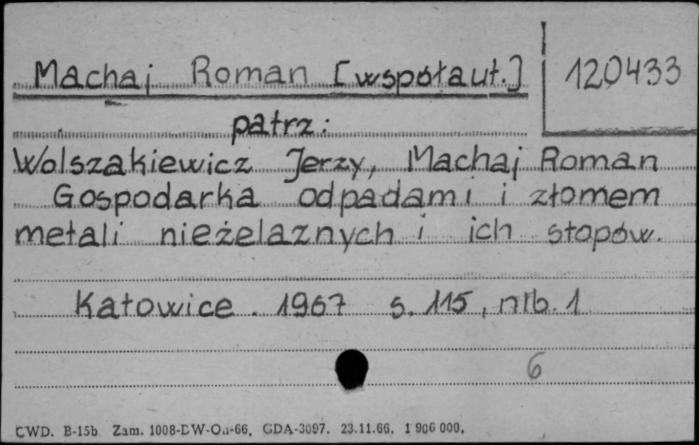 Machaj Roman [współaut.] 120433
patrz:
Wolszakiewicz Jerzy, Machaj Roman
Gospodarka odpadami i złomem
metali nieżelaznych i ich stopów.
Katowice. 1967 s. 115, nlb. 1
6
CWD. B-15b Zam. 1008-DW-Oa-66. GDA-3097. 23.11.66. 1 906 000.